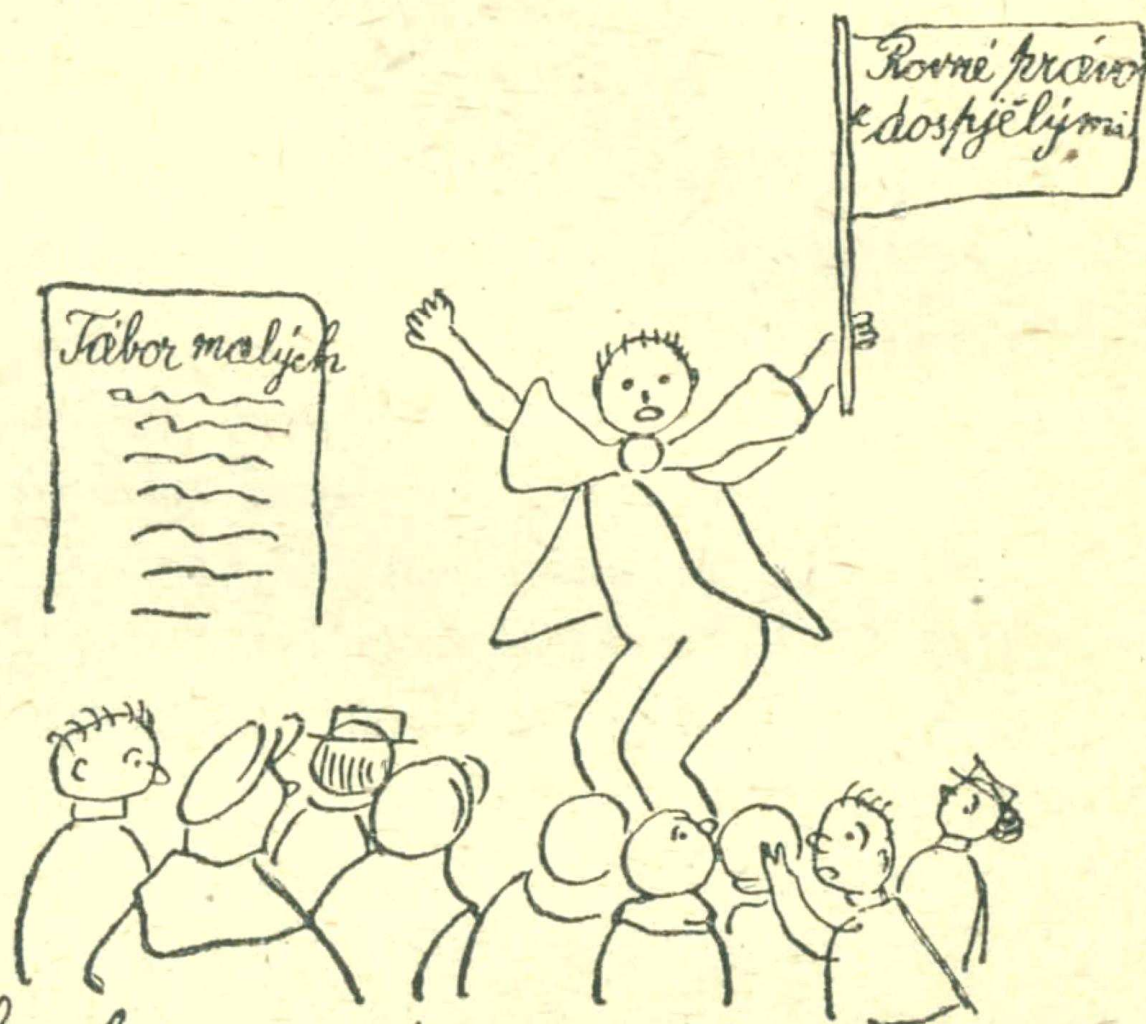 Rovné právo
s dospjělými
Tábor malých